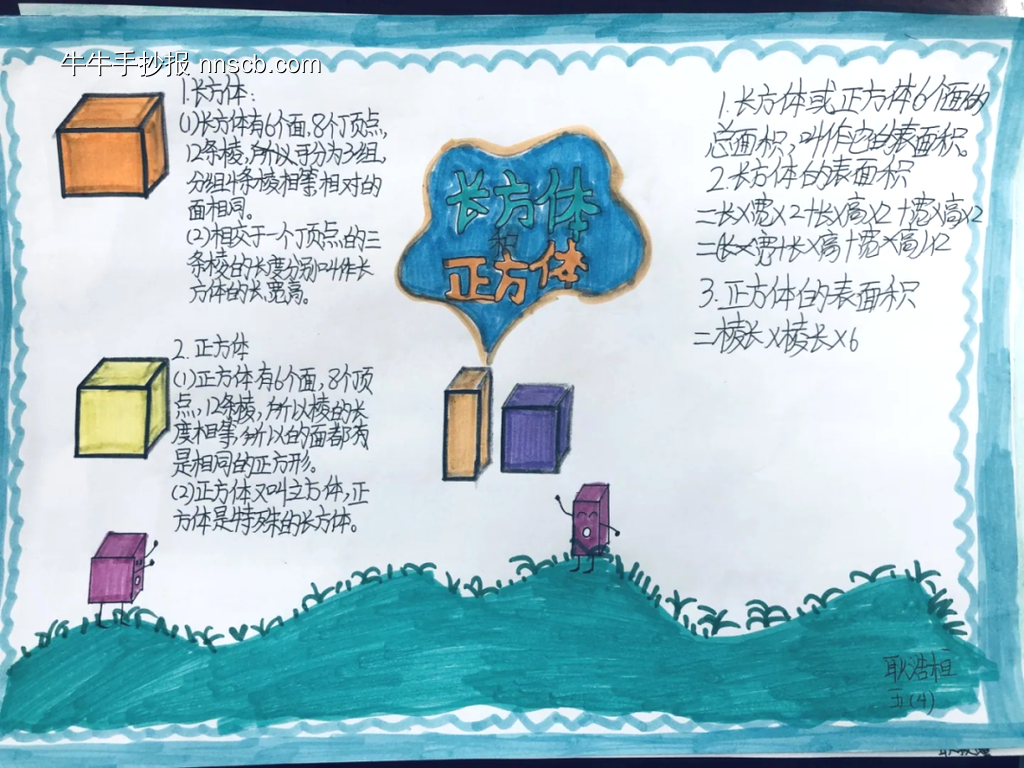 牛牛手抄报 nnscb.com
1.长方体:
(1)长方体有6个面,8个顶点,
12条棱,所以于分为3组,
分组4条棱相等相对的
面相同。
(2)相交于一个顶点的三
条棱的长度分别叫作长
方体的长宽高。
2.正方体
(1)正方体有6个面,8个顶
点,12条棱,所以棱的长
度相等,所以的面都为
是相同的正方形。
(2)正方体又叫立方体,正
方体是特殊的长方体。
长方体
和
正方体
1.长方体或正方体6个面的
总面积,叫作它的表面积。
2.长方体的表面积
=长×宽×2+长×高×2+宽×高×2
=(长×宽+长×高+宽×高)×2
3.正方体的表面积
=棱长×棱长×6
耿浩桓
五(4)